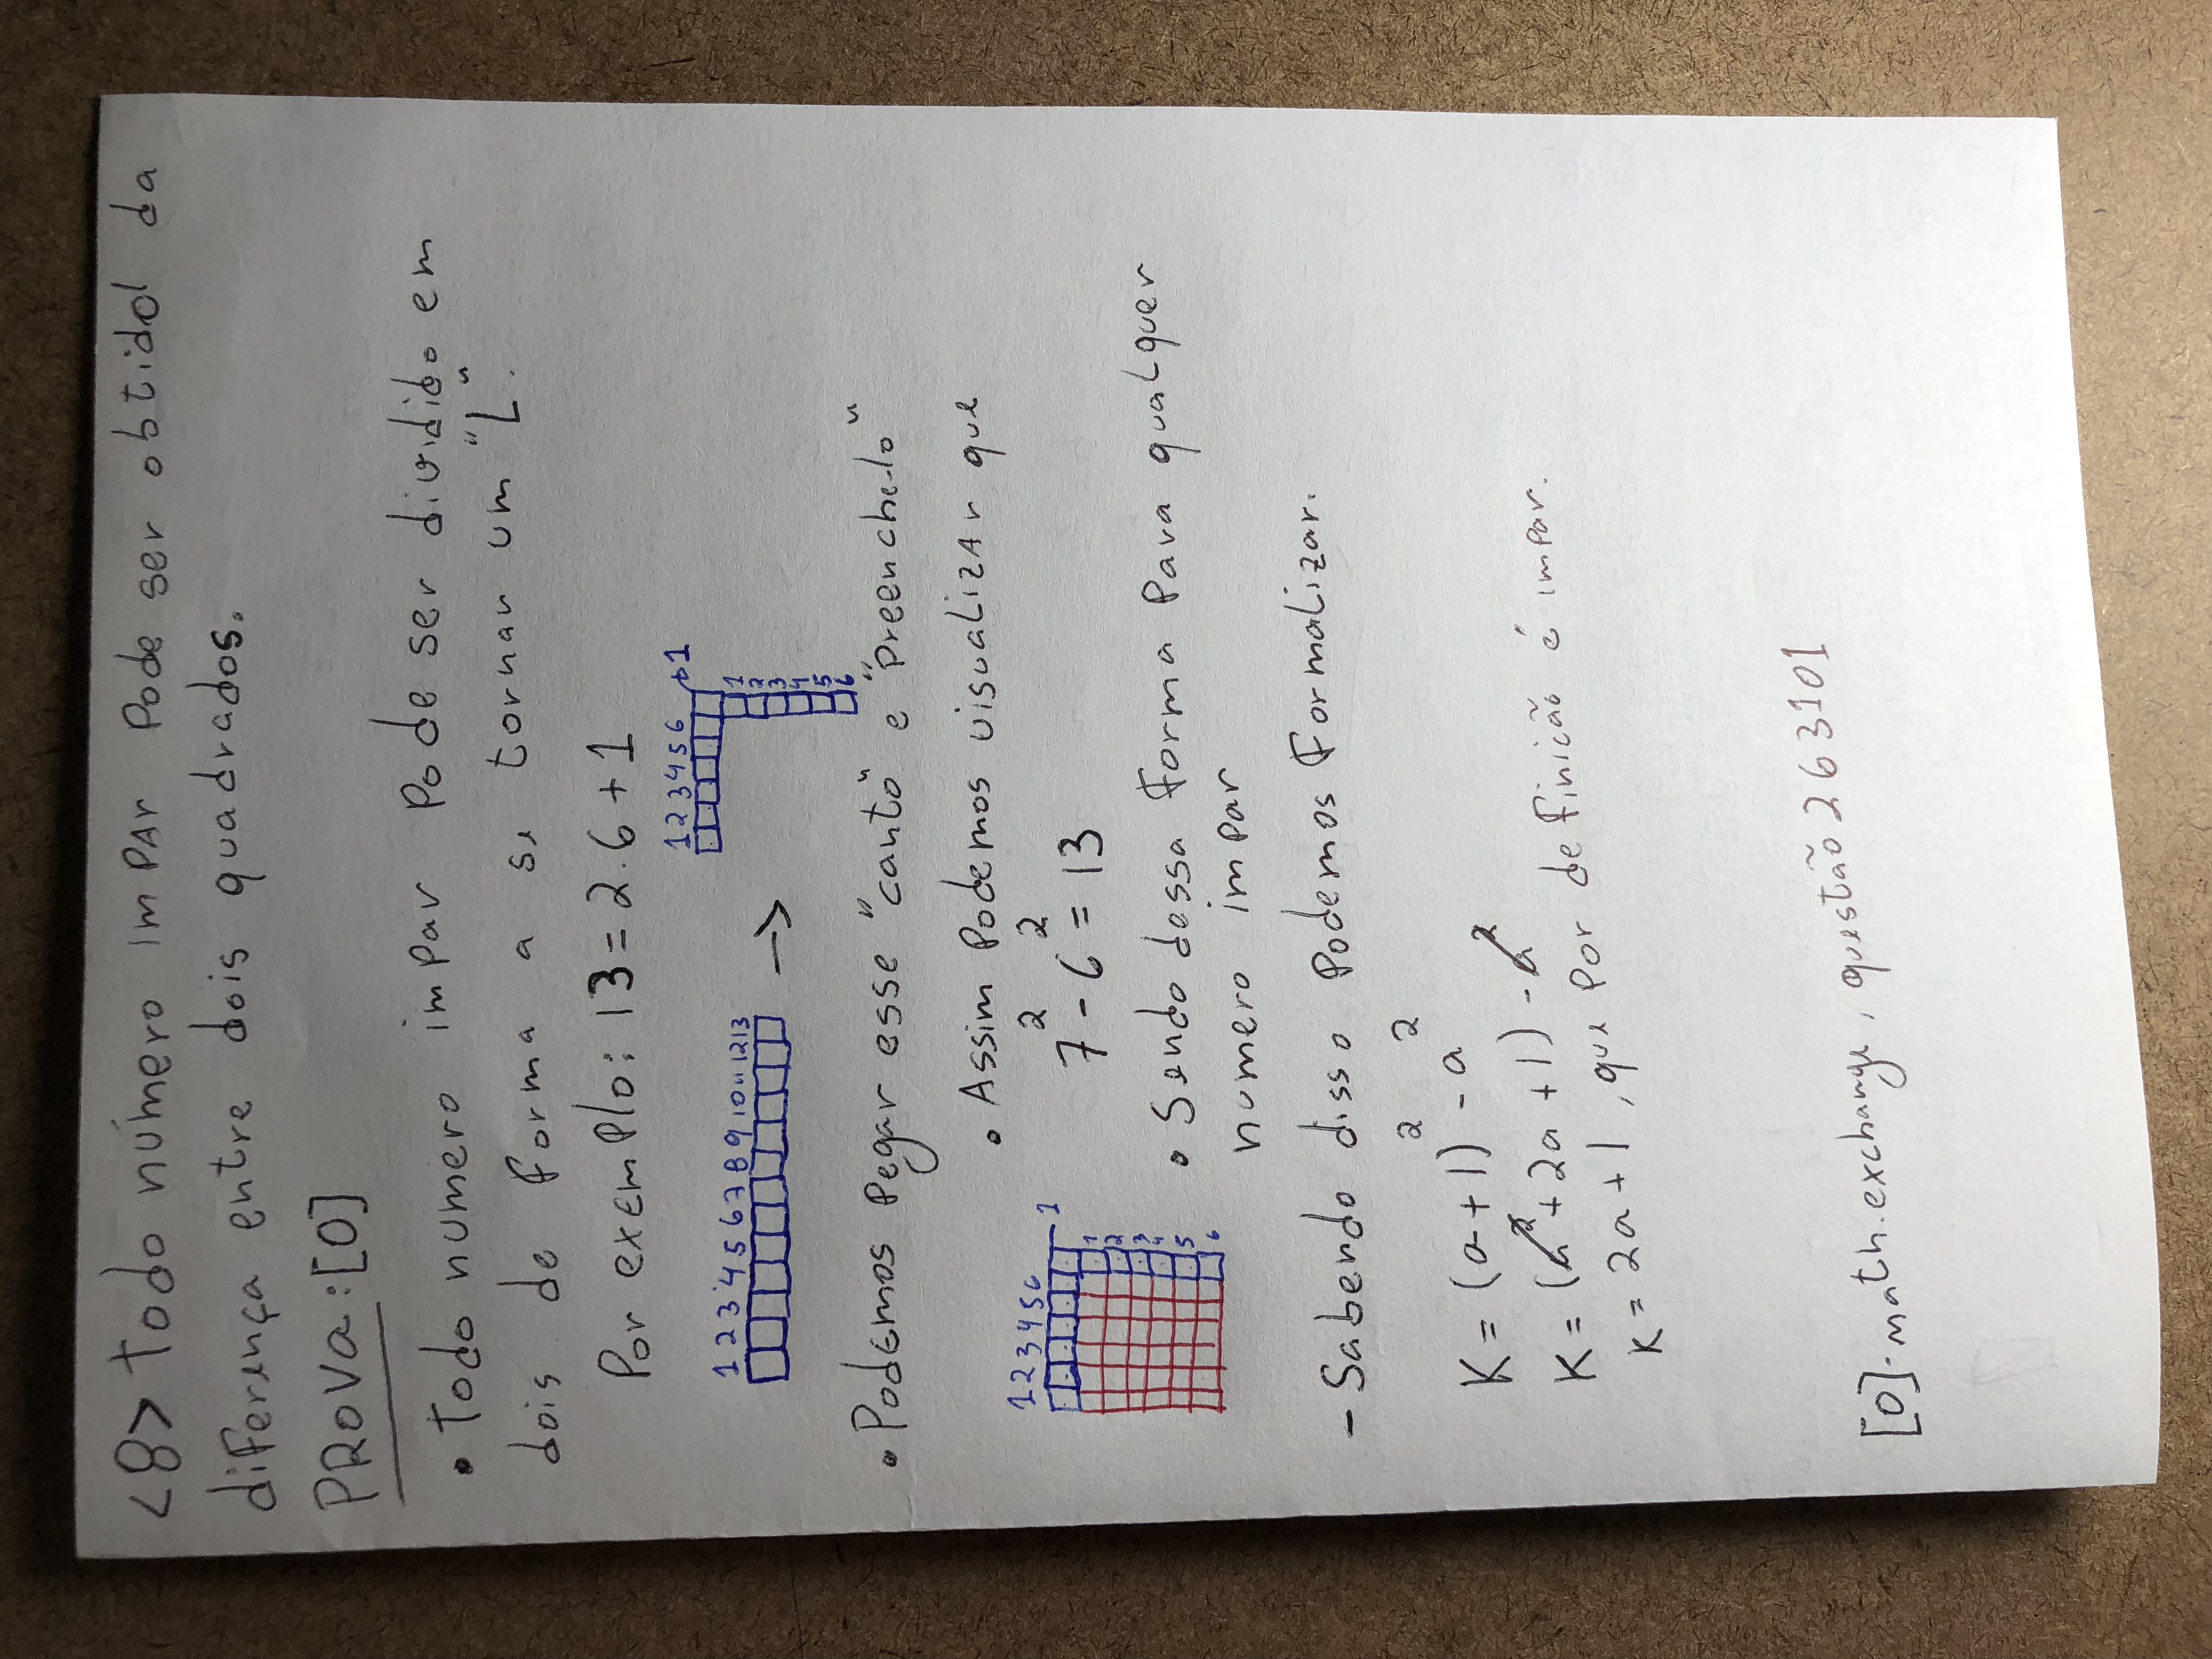 <8> Todo número impar pode ser obtido da
diferença entre dois quadrados.
PROVA:[0]
• Todo numero impar pode ser dividido em
dois de forma a se tornar um "L".
Por exemplo: 13 = 2.6 + 1
1 2 3 4 5 6 → 1
1 2 3 4 5 6 7 8 9 10 11 12 13 →
1
2
3
4
5
6
• Podemos pegar esse "canto" e "preenche-lo"
• Assim podemos visualizar que
1 2 3 4 5 6 1
7² - 6² = 13
1
2
3
4
5
6
• Sendo dessa forma para qualquer
numero impar
- Sabendo disso podemos formalizar.
K = (a+1)² - a²
K = (a² + 2a + 1) - a²
K = 2a + 1, que por definicão é impar.
[0]. math.exchange, questão 263101